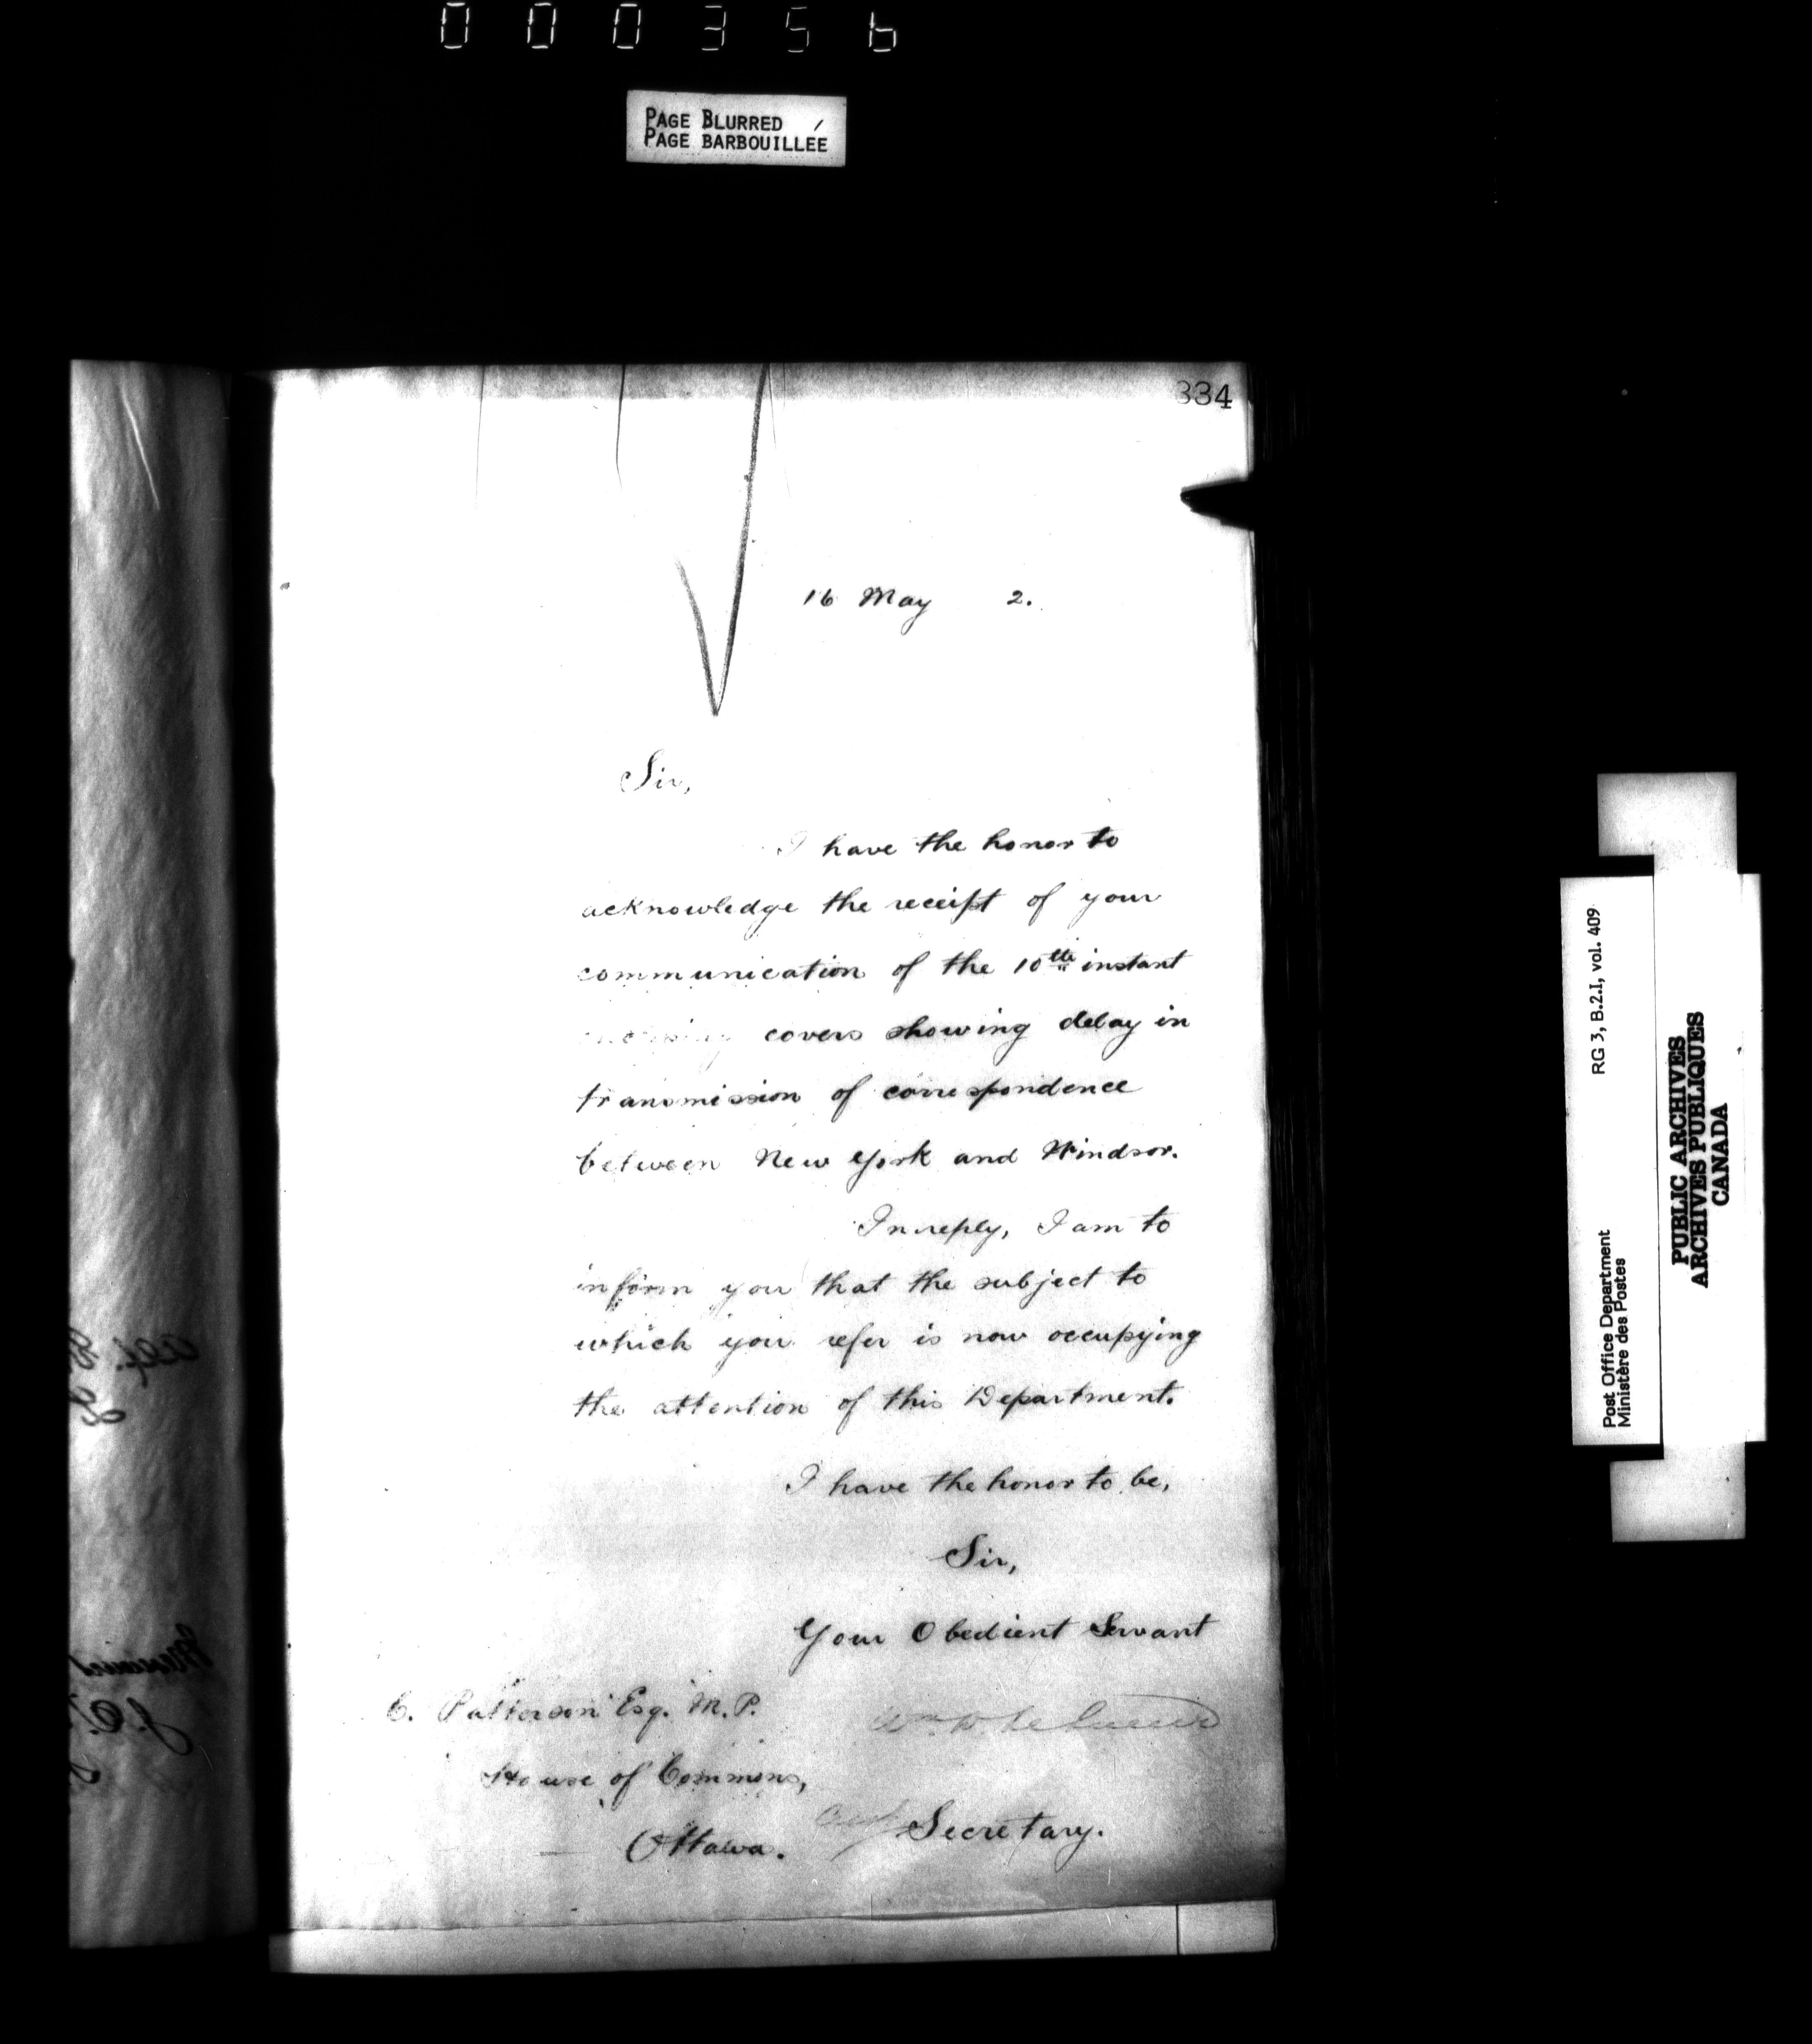 000356
PAGE BLURRED
PAGE BARBOUILLÉE
334
16 May 2.
Sir,
I have the honor to
acknowledge the receipt of your
communication of the 10th instant
covers showing delay in
transmission of correspondence
between New York and Windsor.
In reply, I am to
inform you that the subject to
which you refer is now occupying
the attention of this Department.
I have the honor to be,
Sir,
Your Obedient Servant
C. Patterson Esq. M.P.
House of Commons,
Ottawa.
Secretary.
RG 3, B.2.I, vol. 409
Post Office Department
Ministère des Postes
PUBLIC ARCHIVES
ARCHIVES PUBLIQUES
CANADA